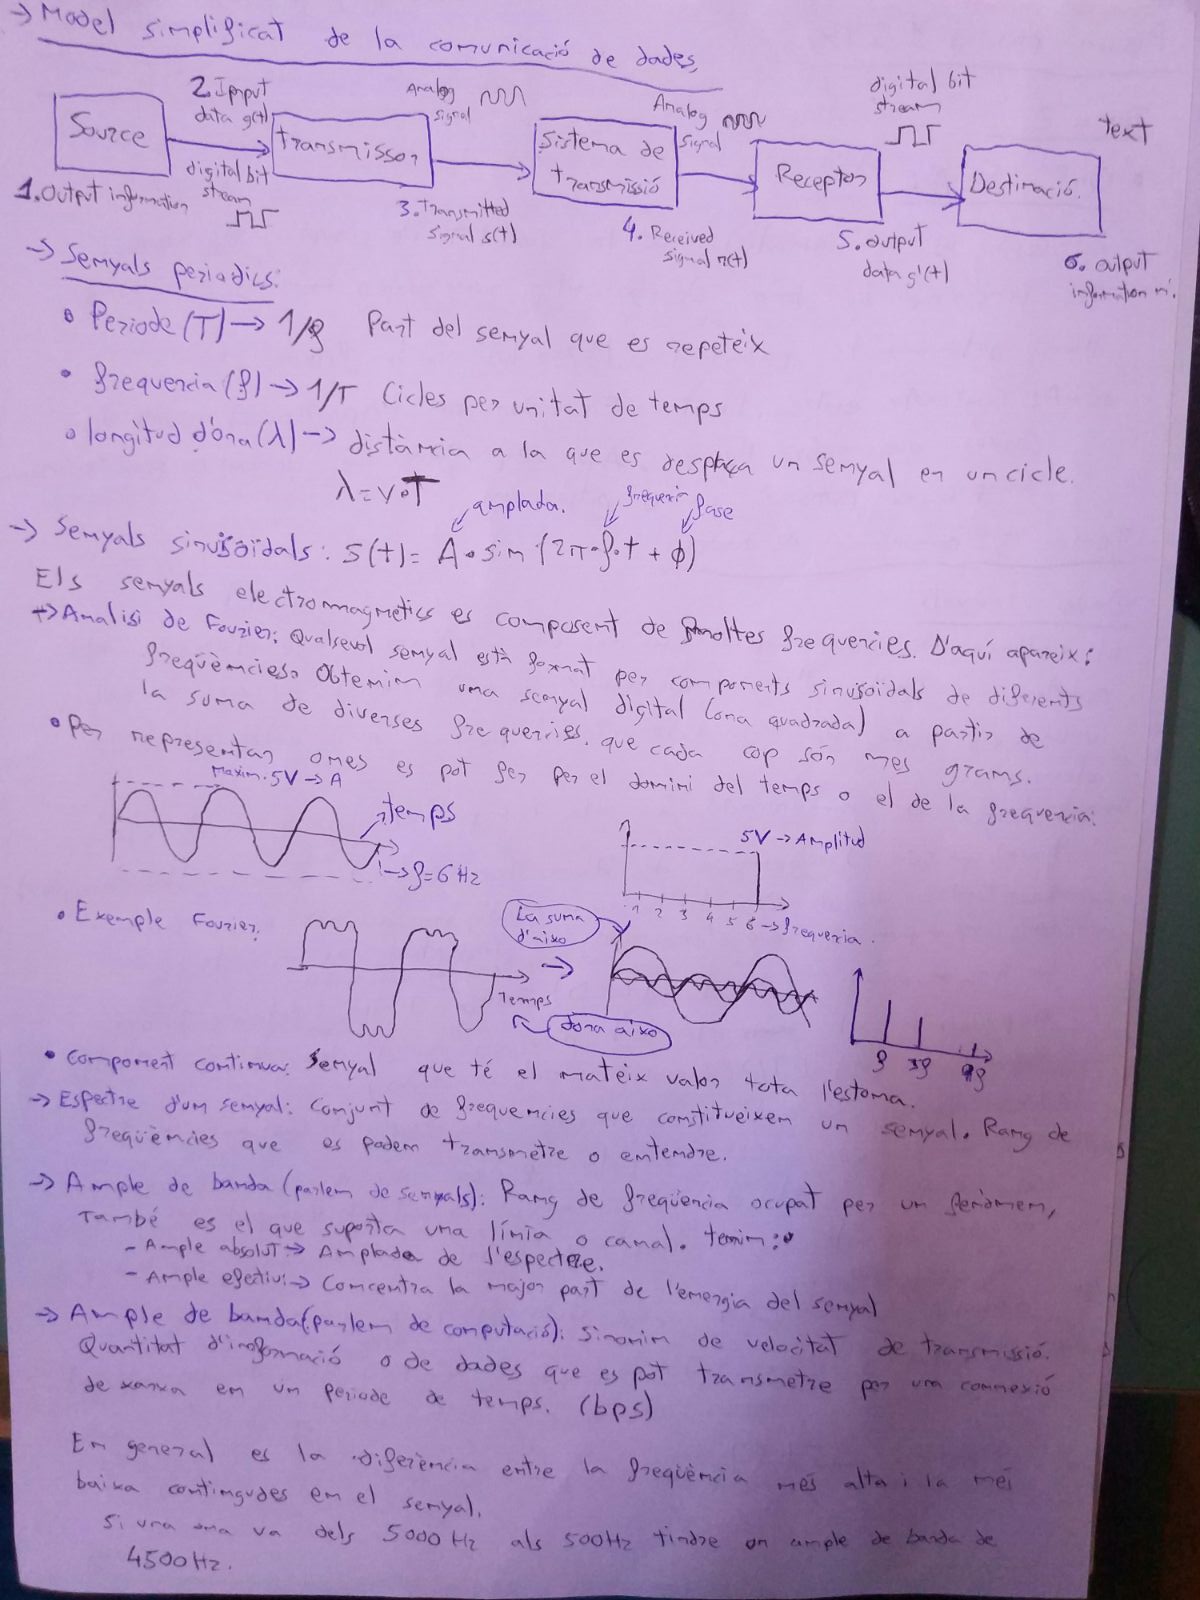 -> Model simplificat de la comunicació de dades,
Source
2. Inpput
data g(t)
digital bit
stream
1. Output information
transmissor
Analog
signal
3. Transmitted
signal s(t)
sistema de
transmissió
Analog
signal
4. Received
signal r(t)
Receptor
digital bit
stream
5. output
data g'(t)
Destinació.
text
6. output
information m'.
-> Semyals periodics:
• Periode (T) -> 1/f Part del semyal que es repeteix
• frequencia (f) -> 1/T Cicles per unitat de temps
• longitud d'ona (λ) -> distància a la que es desplaça un semyal en un cicle.
λ = v • T
amplada. frequencia fase
-> Semyals sinusoïdals: s(t) = A • sin (2π • f • t + ϕ)
Els semyals electromagnetics es composent de moltes frequencies. D'aquí apareix:
-> Analisi de Fourier: Qualsevol semyal està format per components sinusoïdals de diferents
freqüències. Obtenim una senyal digital (ona quadrada) a partir de
la suma de diverses frequencies. que cada cop són mes grans.
• Per representar ones es pot fer per el domini del temps o el de la frequencia:
Maxim. 5V -> A
temps
-> f = 6 Hz
5V -> Amplitud
1 2 3 4 5 6 -> frequencia.
• Exemple Fourier:
Temps
La suma
d'aixo
dona aixo
f 3f 9f
• Component continua: Semyal que té el mateix valor tota l'estona.
-> Espectre d'un semyal: Conjunt de frequencies que constitueixen un semyal. Rang de
freqüències que es poden transmetre o entendre.
-> Ample de banda (parlem de semyals): Rang de freqüència ocupat per un fenòmen,
també es el que suporta una línia o canal. tenim:
- Ample absolut -> Amplada de l'espectre.
- Ample efectiu: -> Concentra la major part de l'energia del semyal
-> Ample de banda (parlem de computació): Sinonim de velocitat de transmissió.
Quantitat d'informació o de dades que es pot transmetre per una connexió
de xarxa en un periode de temps. (bps)
En general es la diferència entre la freqüència més alta i la més
baixa contingudes en el semyal.
Si una ona va dels 5000 Hz als 500Hz tindre un ample de banda de
4500Hz.